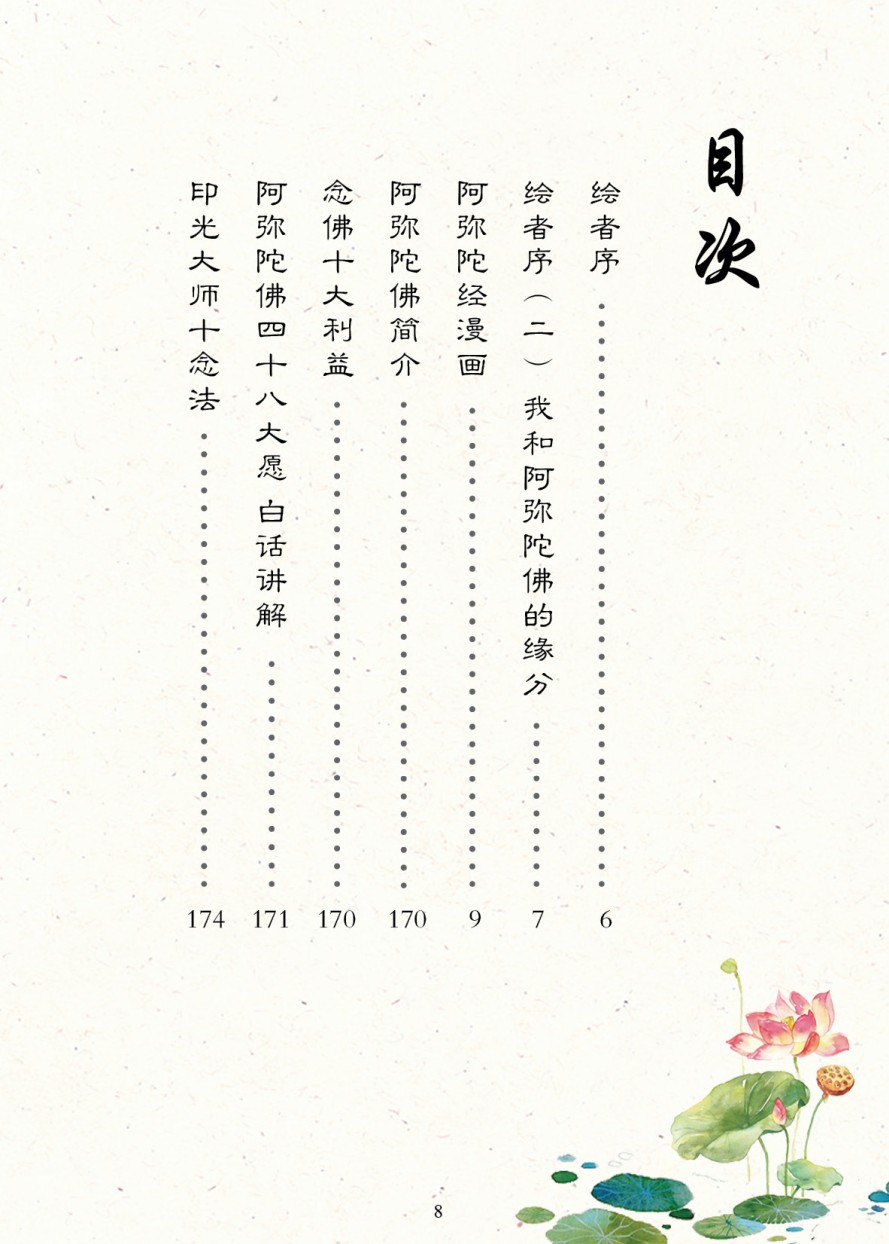 目次
绘者序 6
绘者序（二） 我和阿弥陀佛的缘分 7
阿弥陀经漫画 9
阿弥陀佛简介 170
念佛十大利益 170
阿弥陀佛四十八大愿 白话讲解 171
印光大师十念法 174
8